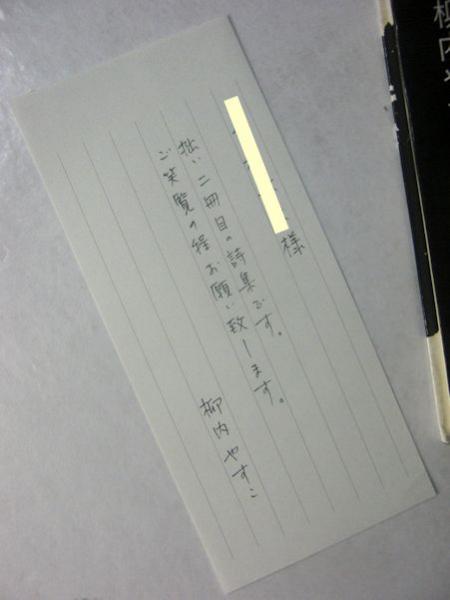 様
拙い二冊目の詩集です。
ご笑覧の程お願い致します。
柳内やすこ
柳内や